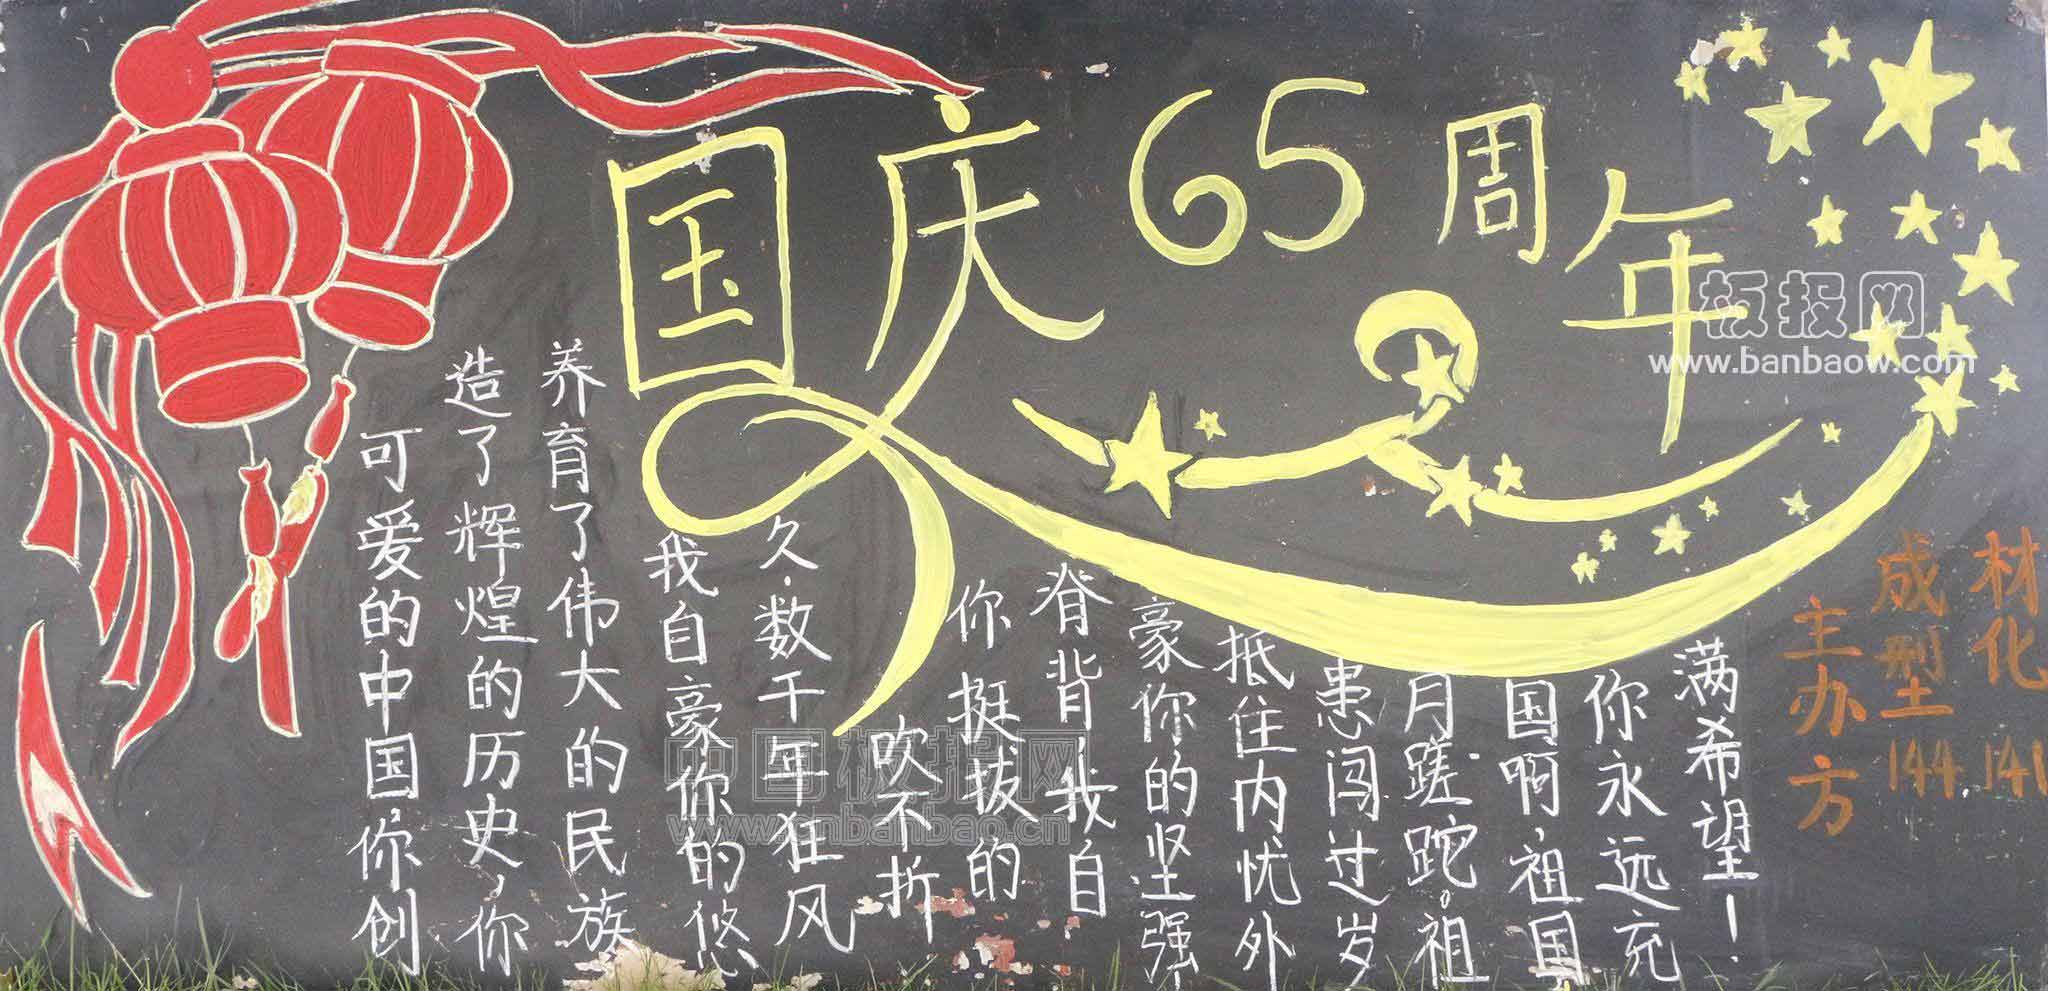 国庆65周年
可爱的中国,你创
造了辉煌的历史,你
养育了伟大的民族
我自豪你的悠
久.数千年狂风
吹不折
你挺拔的
脊背,我自
豪你的坚强
抵住内忧外
患闯过岁
月蹉跎。祖
国啊祖国
你永远充
满希望!
主办方
成型144
材化141
板报网
www.banbaow.com
中国板报网
www.cnbanbao.cn